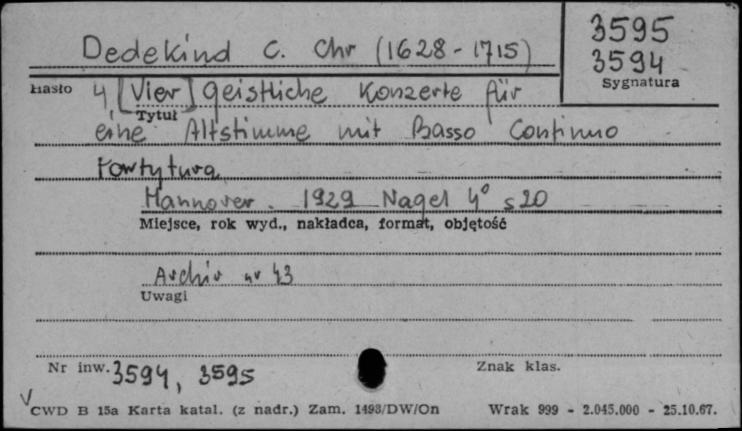 3595
Dedekind C. Chr (1628-1715)
3594
Sygnatura
Hasło
4 [Vier] geistliche Konzerte für
Tytuł
eine Altstimme mit Basso Continuo
Partytura
Hannover. 1929 Nagel 4° s 20
Miejsce, rok wyd., nakładca, format, objętość
Archiv nr 43
Uwagi
Nr inw. 3594, 3595
Znak klas.
V
CWD B 15a Karta katal. (z nadr.) Zam. 1493/DW/On Wrak 999 - 2.045.000 - 25.10.67.